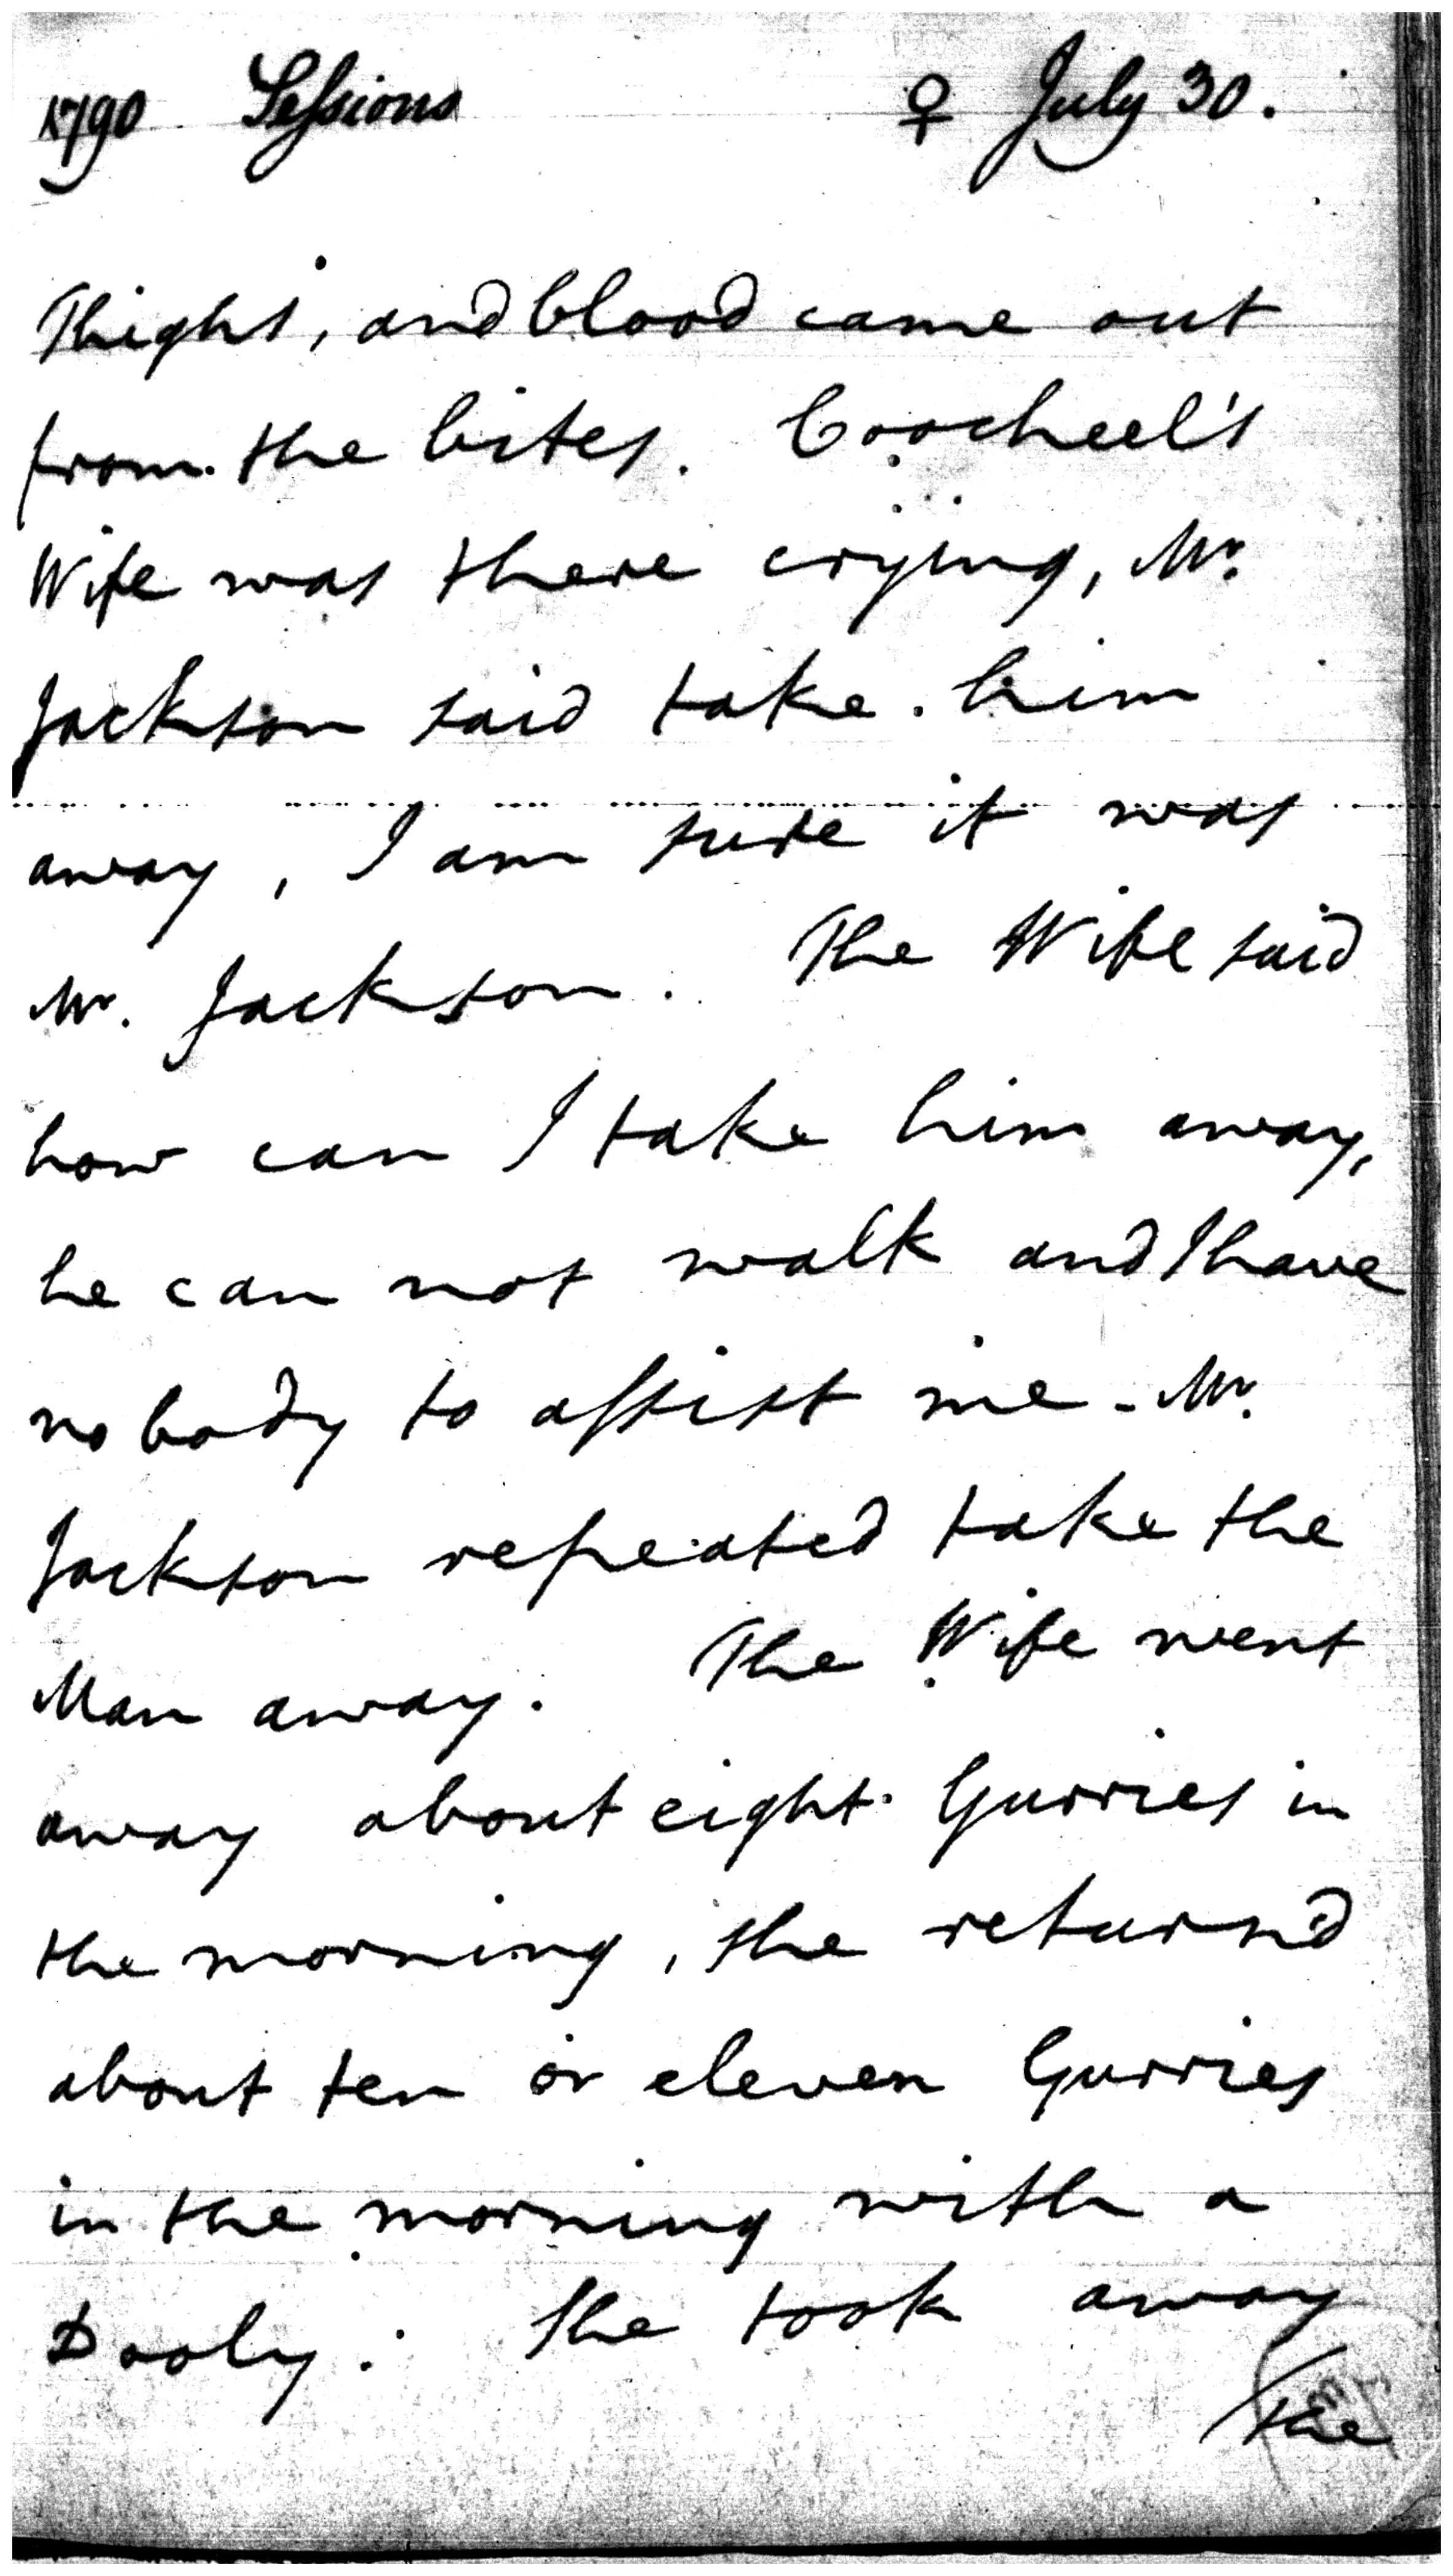 1790 Sessions ♀ July 30.
Thighs, and blood came out
from the bites. Coocheel's
Wife was there crying, Mr.
Jackson said take him
away, I am sure it was
Mr. Jackson. The Wife said
how can I take him away,
he can not walk and I have
no body to assist me - Mr.
Jackson repeated take the
Man away. The Wife went
away about eight Gurries in
the morning, she return'd
about ten or eleven Gurries
in the morning with a
Dooly. She took away
the